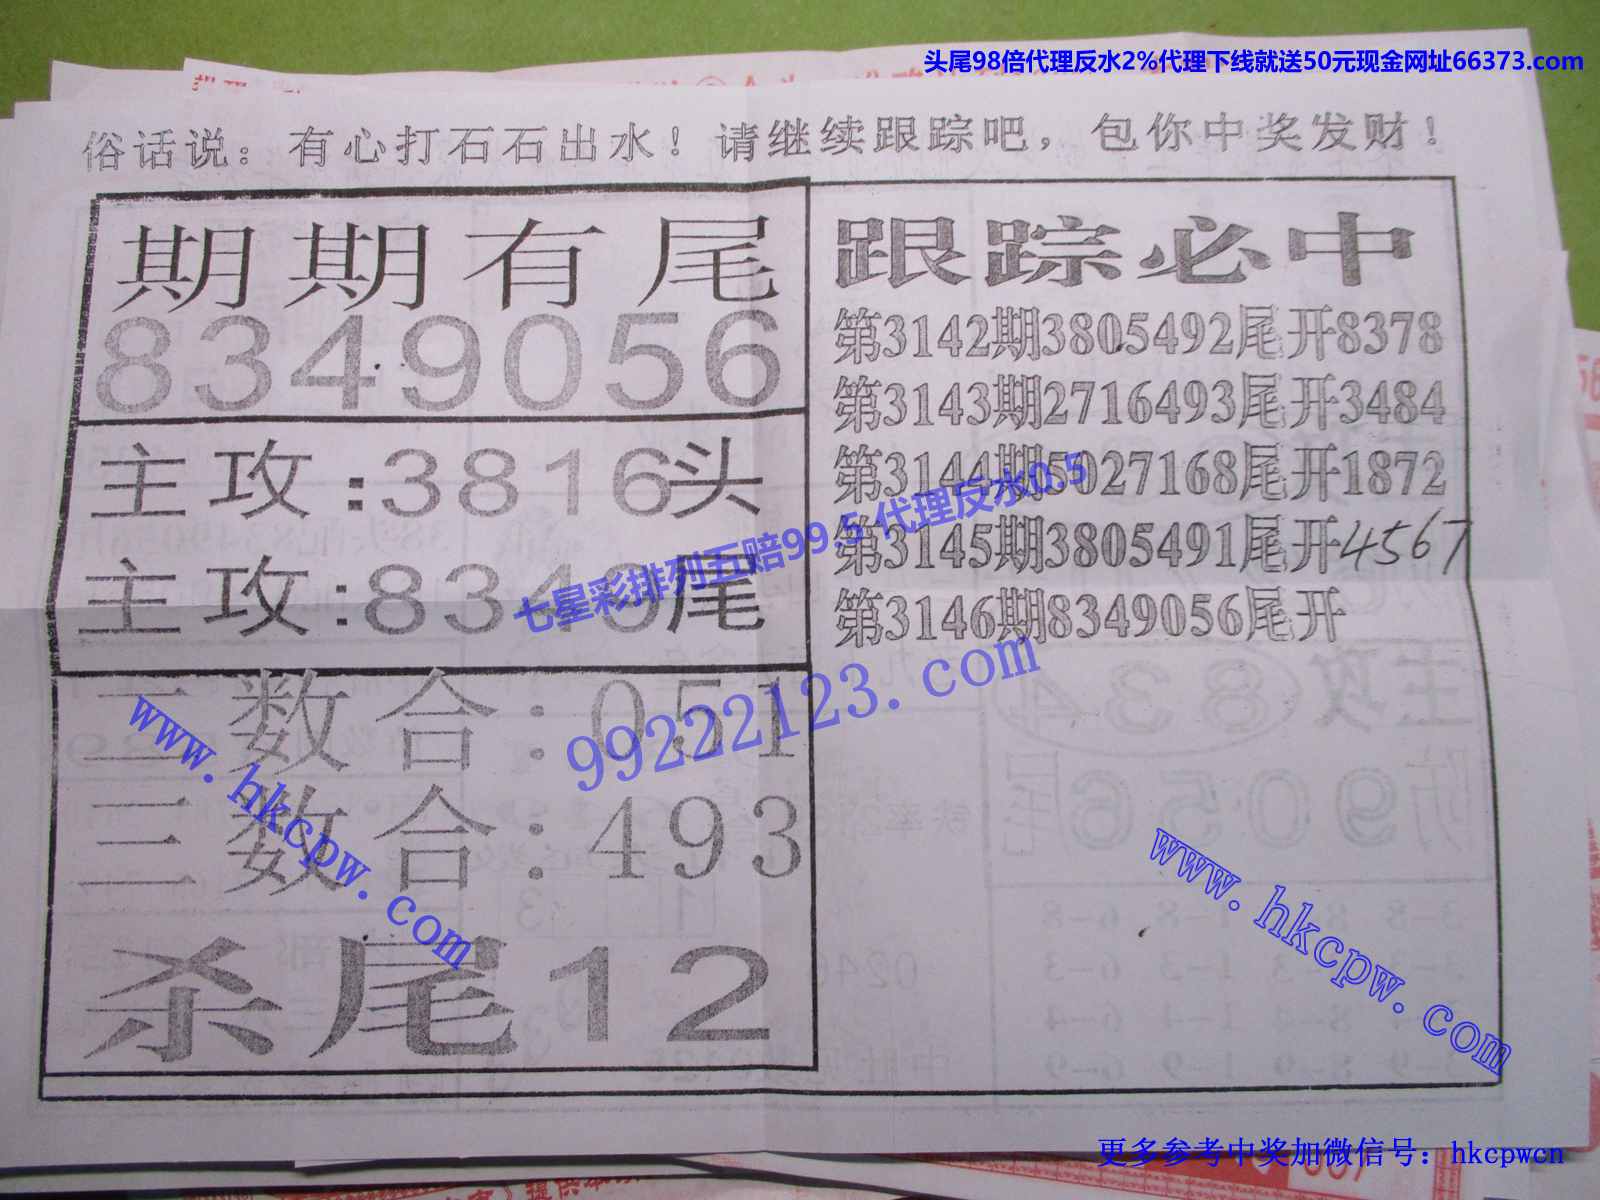 头尾98倍代理反水2%代理下线就送50元现金网址66373.com
俗话说：有心打石石出水！请继续跟踪吧，包你中奖发财！
期期有尾
8349056
主攻:3816头
主攻:8349尾
二数合:051
三数合:493
杀尾12
跟踪必中
第3142期3805492尾开8378
第3143期2716493尾开3484
第3144期5027168尾开1872
第3145期3805491尾开4567
第3146期8349056尾开
七星彩排列五赔99.5 代理反水0.5
99222123.com
www.hkcpw.com
www.hkcpw.com
更多参考中奖加微信号：hkcpwcn